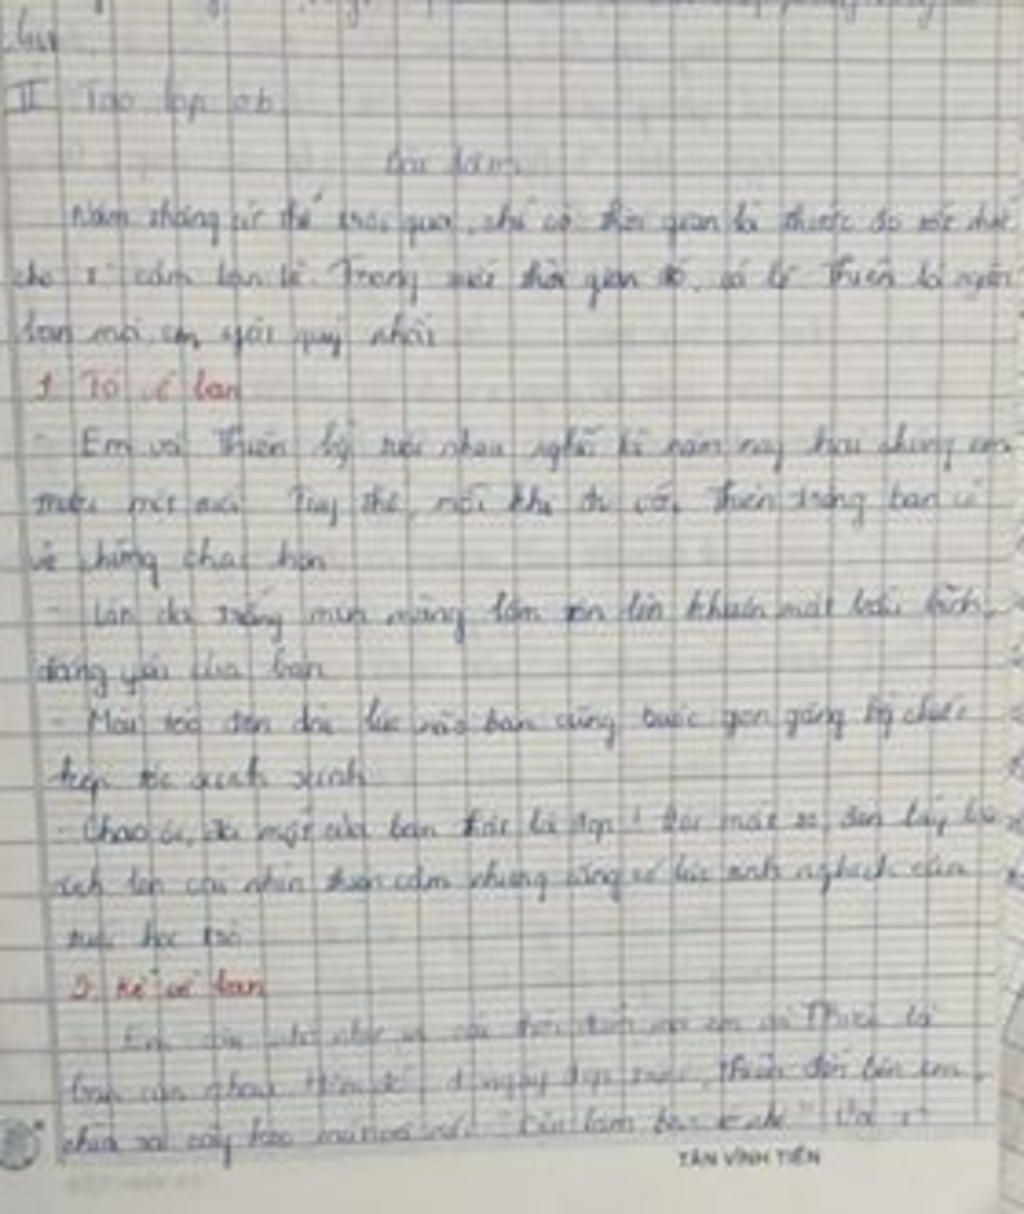 II Tạo lập vb
Bài làm
Năm tháng cứ thế trôi qua, chỉ có thời gian là thước đo tốt nhất
cho 1 cảm bạn bè. Trong suốt thời gian đó, có lẽ Thiên là người
bạn mà em yêu quý nhất
1. Tả về bạn
- Em và Thiên bằng tuổi nhau nghĩa là năm nay hai chúng em
mười một tuổi Tuy thế, mỗi khi đi với Thiên trông bạn có
vẻ chững chạc hơn
- Làn da trắng mịn màng làm tôn lên khuôn mặt bầu bĩnh,
đáng yêu của bạn
- Mái tóc đen dài lúc nào bạn cũng buộc gọn gàng bằng chiếc
kẹp tóc xinh xinh
- Chao ôi, đôi mắt của bạn thật là đẹp! Đôi mắt to, đen láy
ánh lên cái nhìn thiện cảm nhưng cũng có lúc tinh nghịch của
tuổi học trò
2. Kể về bạn
Em còn nhớ như in cái thời điểm mà em và Thiên là
bạn của nhau. Hôm đó, 1 ngày đẹp trời, Thiên đến bên em,
chìa ra cây kẹo mút và nói "Cậu làm bạn nhé"
TÂN VĨNH TIẾN